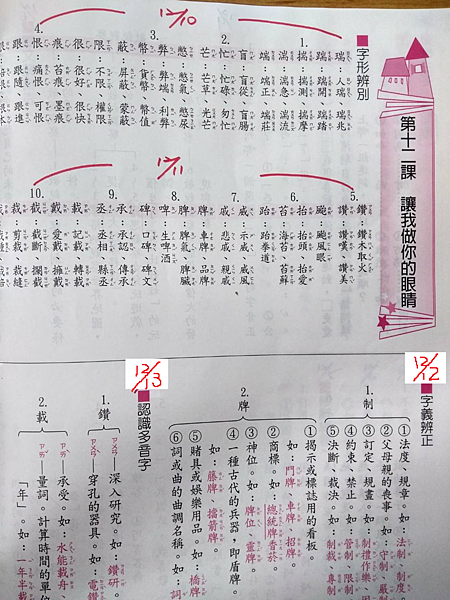 第十二課　讓我做你的眼睛
12/10
字形辨別
1. 瑞：瑞人、瑞兆
踹：踹開、踹踏
揣：揣測、揣摩
湍：湍急、湍流
端：端正、端莊
2. 盲：盲從、盲腸
忙：忙碌、匆忙
芒：芒草、光芒
3. 憋：憋氣、憋尿
弊：弊端、利弊
幣：貨幣、幣值
蔽：屏蔽、蒙蔽
4. 限：不限、權限
很：很好、很快
痕：苔痕、墨痕
恨：痛恨、可恨
跟：跟隨、跟進
12/11
5. 鑽：鑽木取火
讚：讚嘆、讚美
6. 颱：颱風眼
抬：抬頭、抬愛
苔：海苔、苔蘚
跆：跆拳道
7. 威：示威、威風
戚：悲戚、親戚
8. 牌：車牌、品牌
脾：脾氣、脾臟
啤：生啤酒
碑：口碑、碑文
9. 承：承認、傳承
丞：丞相、縣丞
10. 載：記載、轉載
戴：愛戴、擁戴
截：截斷、攔截
裁：剪裁、裁縫
12/12
字義辨正
1. 制
①法度、規章。如：法制、制度。
②父母親的喪事。如：守制、
③訂定、規畫。如：制禮作樂、
④約束、禁止。如：管制、限制
⑤決斷、裁決。如：制裁、專制
2. 牌
①揭示或標誌用的看板。
如：門牌、車牌、招牌
②商標。如：總統牌音菸。
③神位。如：牌位、靈牌。
④一種古代的兵器，即盾牌。
如：藤牌、擋箭牌。
⑤賭具或娛樂用品。如：橋牌
⑥詞或曲的曲調名稱。如：詞
12/13
認識多音字
1. 鑽
ㄗㄨㄢ 深入研究。如：鑽研。
ㄗㄨㄢˋ 穿孔的器具。如：電鑽
2. 載
ㄗㄞˋ 承受。如：水能載舟
ㄗㄞˇ 量詞。計算時間的單位
「年」。如：一年半載